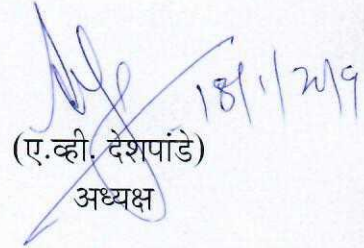 18/1/2019
(ए.व्ही. देशपांडे)
अध्यक्ष